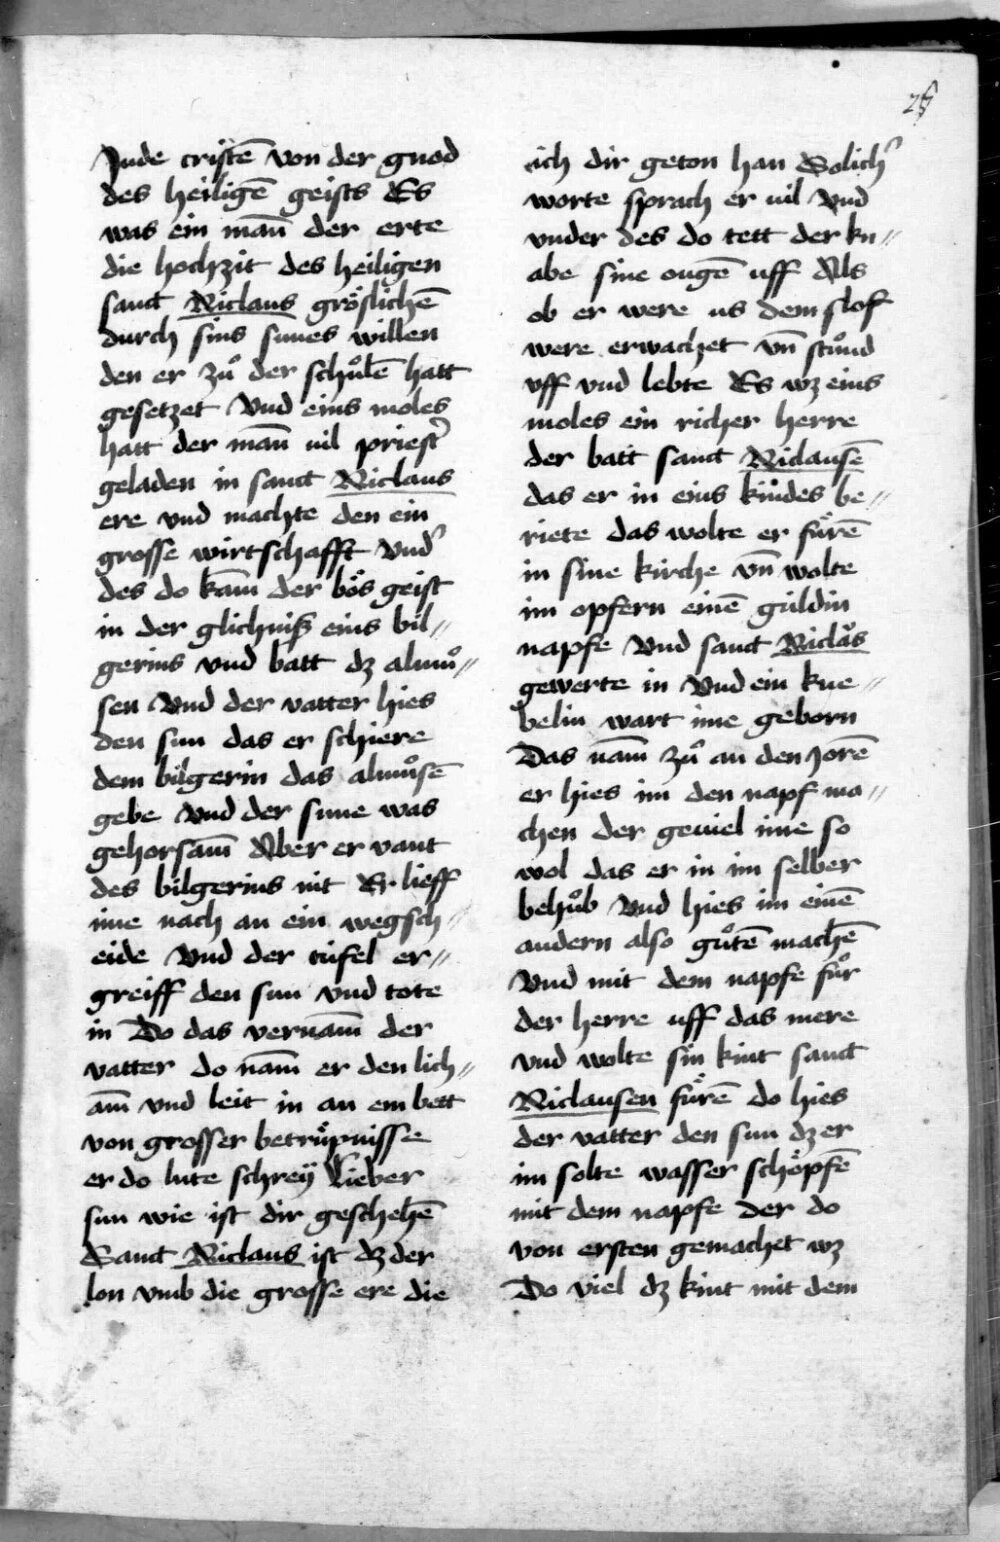 25
Jude cristē von der gnod
des heiligē geists Es
was ein mañ der erte
die hochzit des heiligen
sanct Niclaus gröslichē
durch sins sunes willen
den er zů der schůlē hatt
gesetzet Vnd eins moles
hatt der mañ uil priest᾽
geladen in sanct Niclaus
ere vnd machte den ein
grosse wirtschafft Vnd᾽
des do kam̄ der bös geist
in der glichniß eins bil//
gerins vnd batt dz almů//
sen Vnd der vatter hies
den sun das er schiere
dem bilgerin das almůsē
gebe Vnd der sune was
gehorsam̄ Aber er vant
des bilgerins nit Er lieff
ime nach an ein wegsch//
eide Vnd der tüfel er//
greiff den sun vnd tote
in Do das vernam̄ der
vatter do nam̄ er den lich//
am̄ vnd leit in an em bett
von grosser betrüpnisse
er do lute schreÿ Lieber
sun wie ist dir geschehē
Sanct Niclaus ist dz der
lon vmb die grosse ere die
ich dir geton han Solich᾽
worte sprach er uil Vnd
vnder des do tett der kn//
abe sine ougē uff Als
ob er were us dem slof
were erwachet vn̄ stůnd
vff vnd lebte Es wz eins
moles ein richer herre
der batt sanct Niclausē
das er in eins kindes be//
riete das wolte er fürē
in sine kirche vn̄ wolte
im opfern einē guldin
napfe Vnd sanct Niclaˢs
gewerte in Vnd ein kne//
belin wart ime geborn
Das nam̄ zů an den Jorē
er hies im den napf ma//
chen der geuiel ime so
wol das er in im selber
behůb Vnd hies im einē
andern also gůtē machē
Vnd mit dem napfe fůr
der herre uff das mere
vnd wolte sin kint sanct
Niclausen fürē do hies
der vatter den sun dz er
im solte wasser schöpfē
mit dem napfe der do
von ersten gemachet wz
Do viel dz kint mit dem